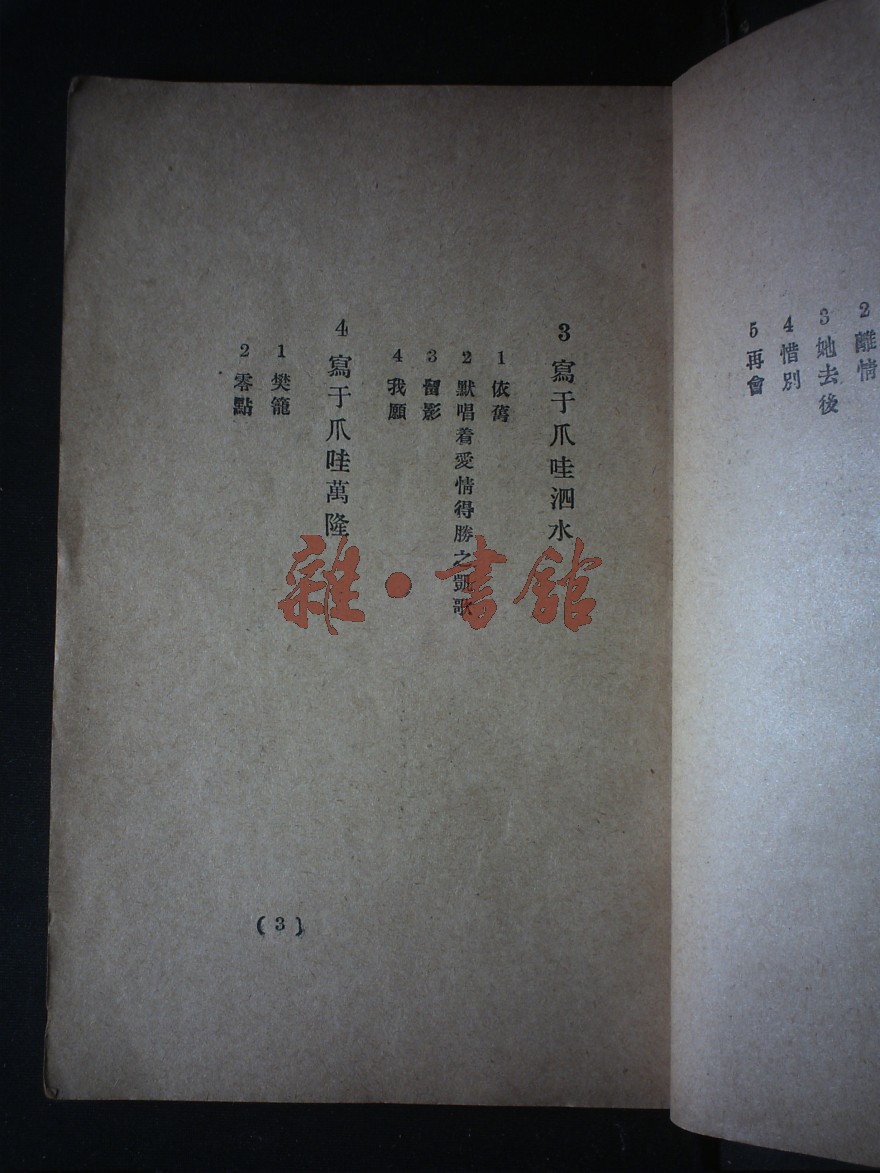 2 離情
3 她去後
4 惜別
5 再會
3 寫于爪哇泗水
1 依舊
2 默唱着愛情得勝之凱歌
3 留影
4 我願
4 寫于爪哇萬隆
1 樊籠
2 零點
(3)
雜·書館